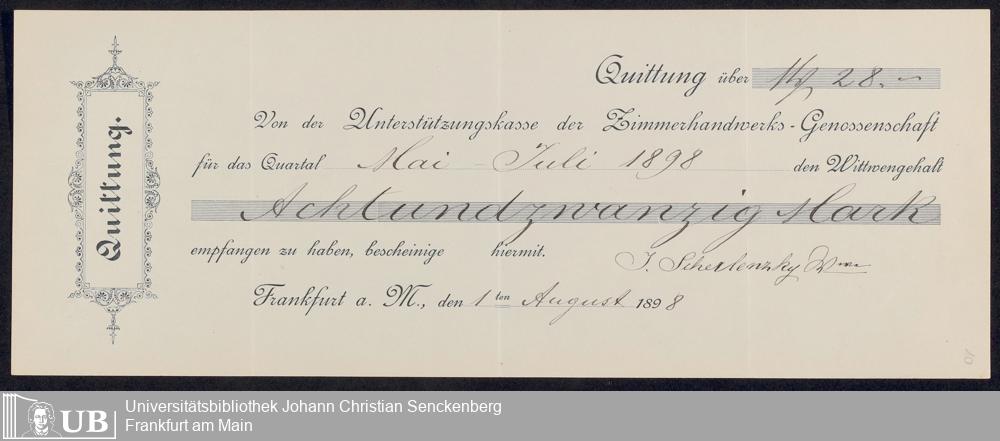 Quittung.
Quittung über M 28.
Von der Unterstützungskasse der Zimmerhandwerks-Genossenschaft
für das Quartal Mai - Juli 1898 den Wittwengehalt
Achtundzwanzig Mark
empfangen zu haben, bescheinige hiermit.
J. Wwe
Frankfurt a. M., den 1ten August 1898
10
UB
Universitätsbibliothek Johann Christian Senckenberg
Frankfurt am Main